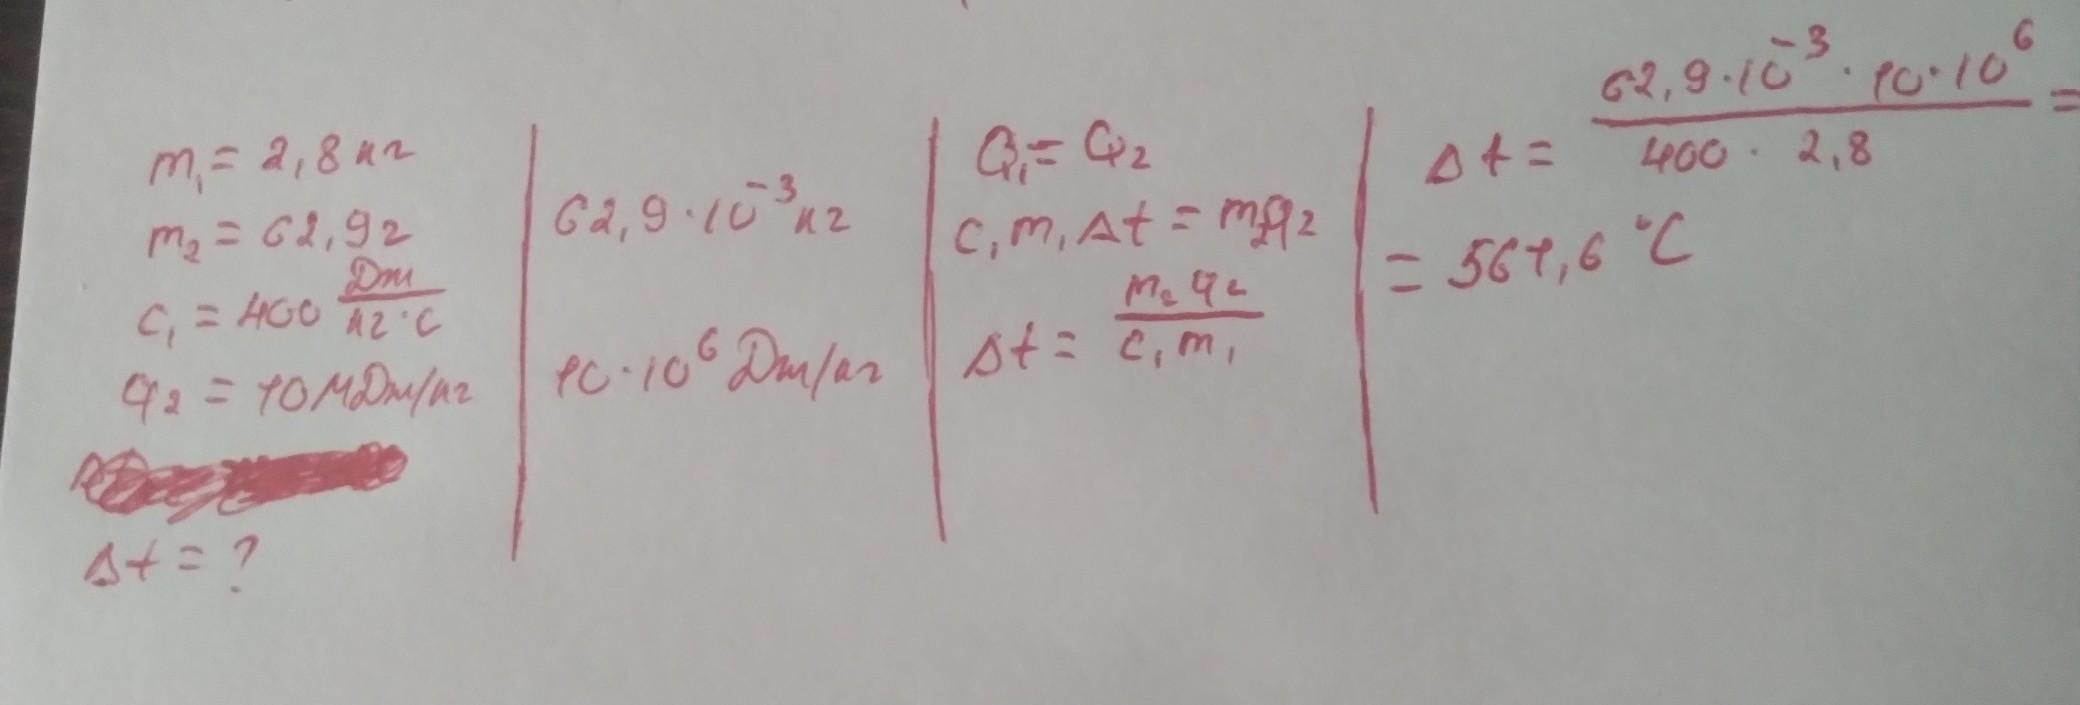 m₁ = 2,8 кг
m₂ = 62,9 г
c₁ = 400 Дж/кг·°C
q₂ = 10 МДж/кг
Δt = ?
62,9·10⁻³ кг
10·10⁶ Дж/кг
Q₁ = Q₂
c₁m₁Δt = m₂q₂
Δt = m₂q₂/c₁m₁
Δt = 62,9·10⁻³·10·10⁶/400·2,8 =
= 561,6 °C